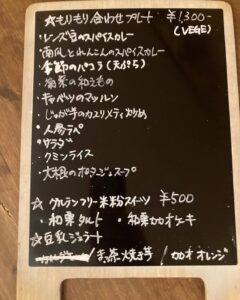 ☆もりもり合わせプレート ¥1,300-
(VEGE)
・レンズ豆のスパイスカレー
・南瓜とれんこんのスパイスカレー
・季節のパコラ(天ぷら)
・の和えもの
・キャベツのマッルン
・じゃが芋のカスリメティ炒め
・人参ラペ
・サラダ
・クミンライス
・大根のポタージュスープ
☆グルテンフリー米粉スイーツ ¥500
・和栗タルト ・和栗カカオケーキ
☆豆乳ジェラート
/ 焼き芋 / カカオオレンジ